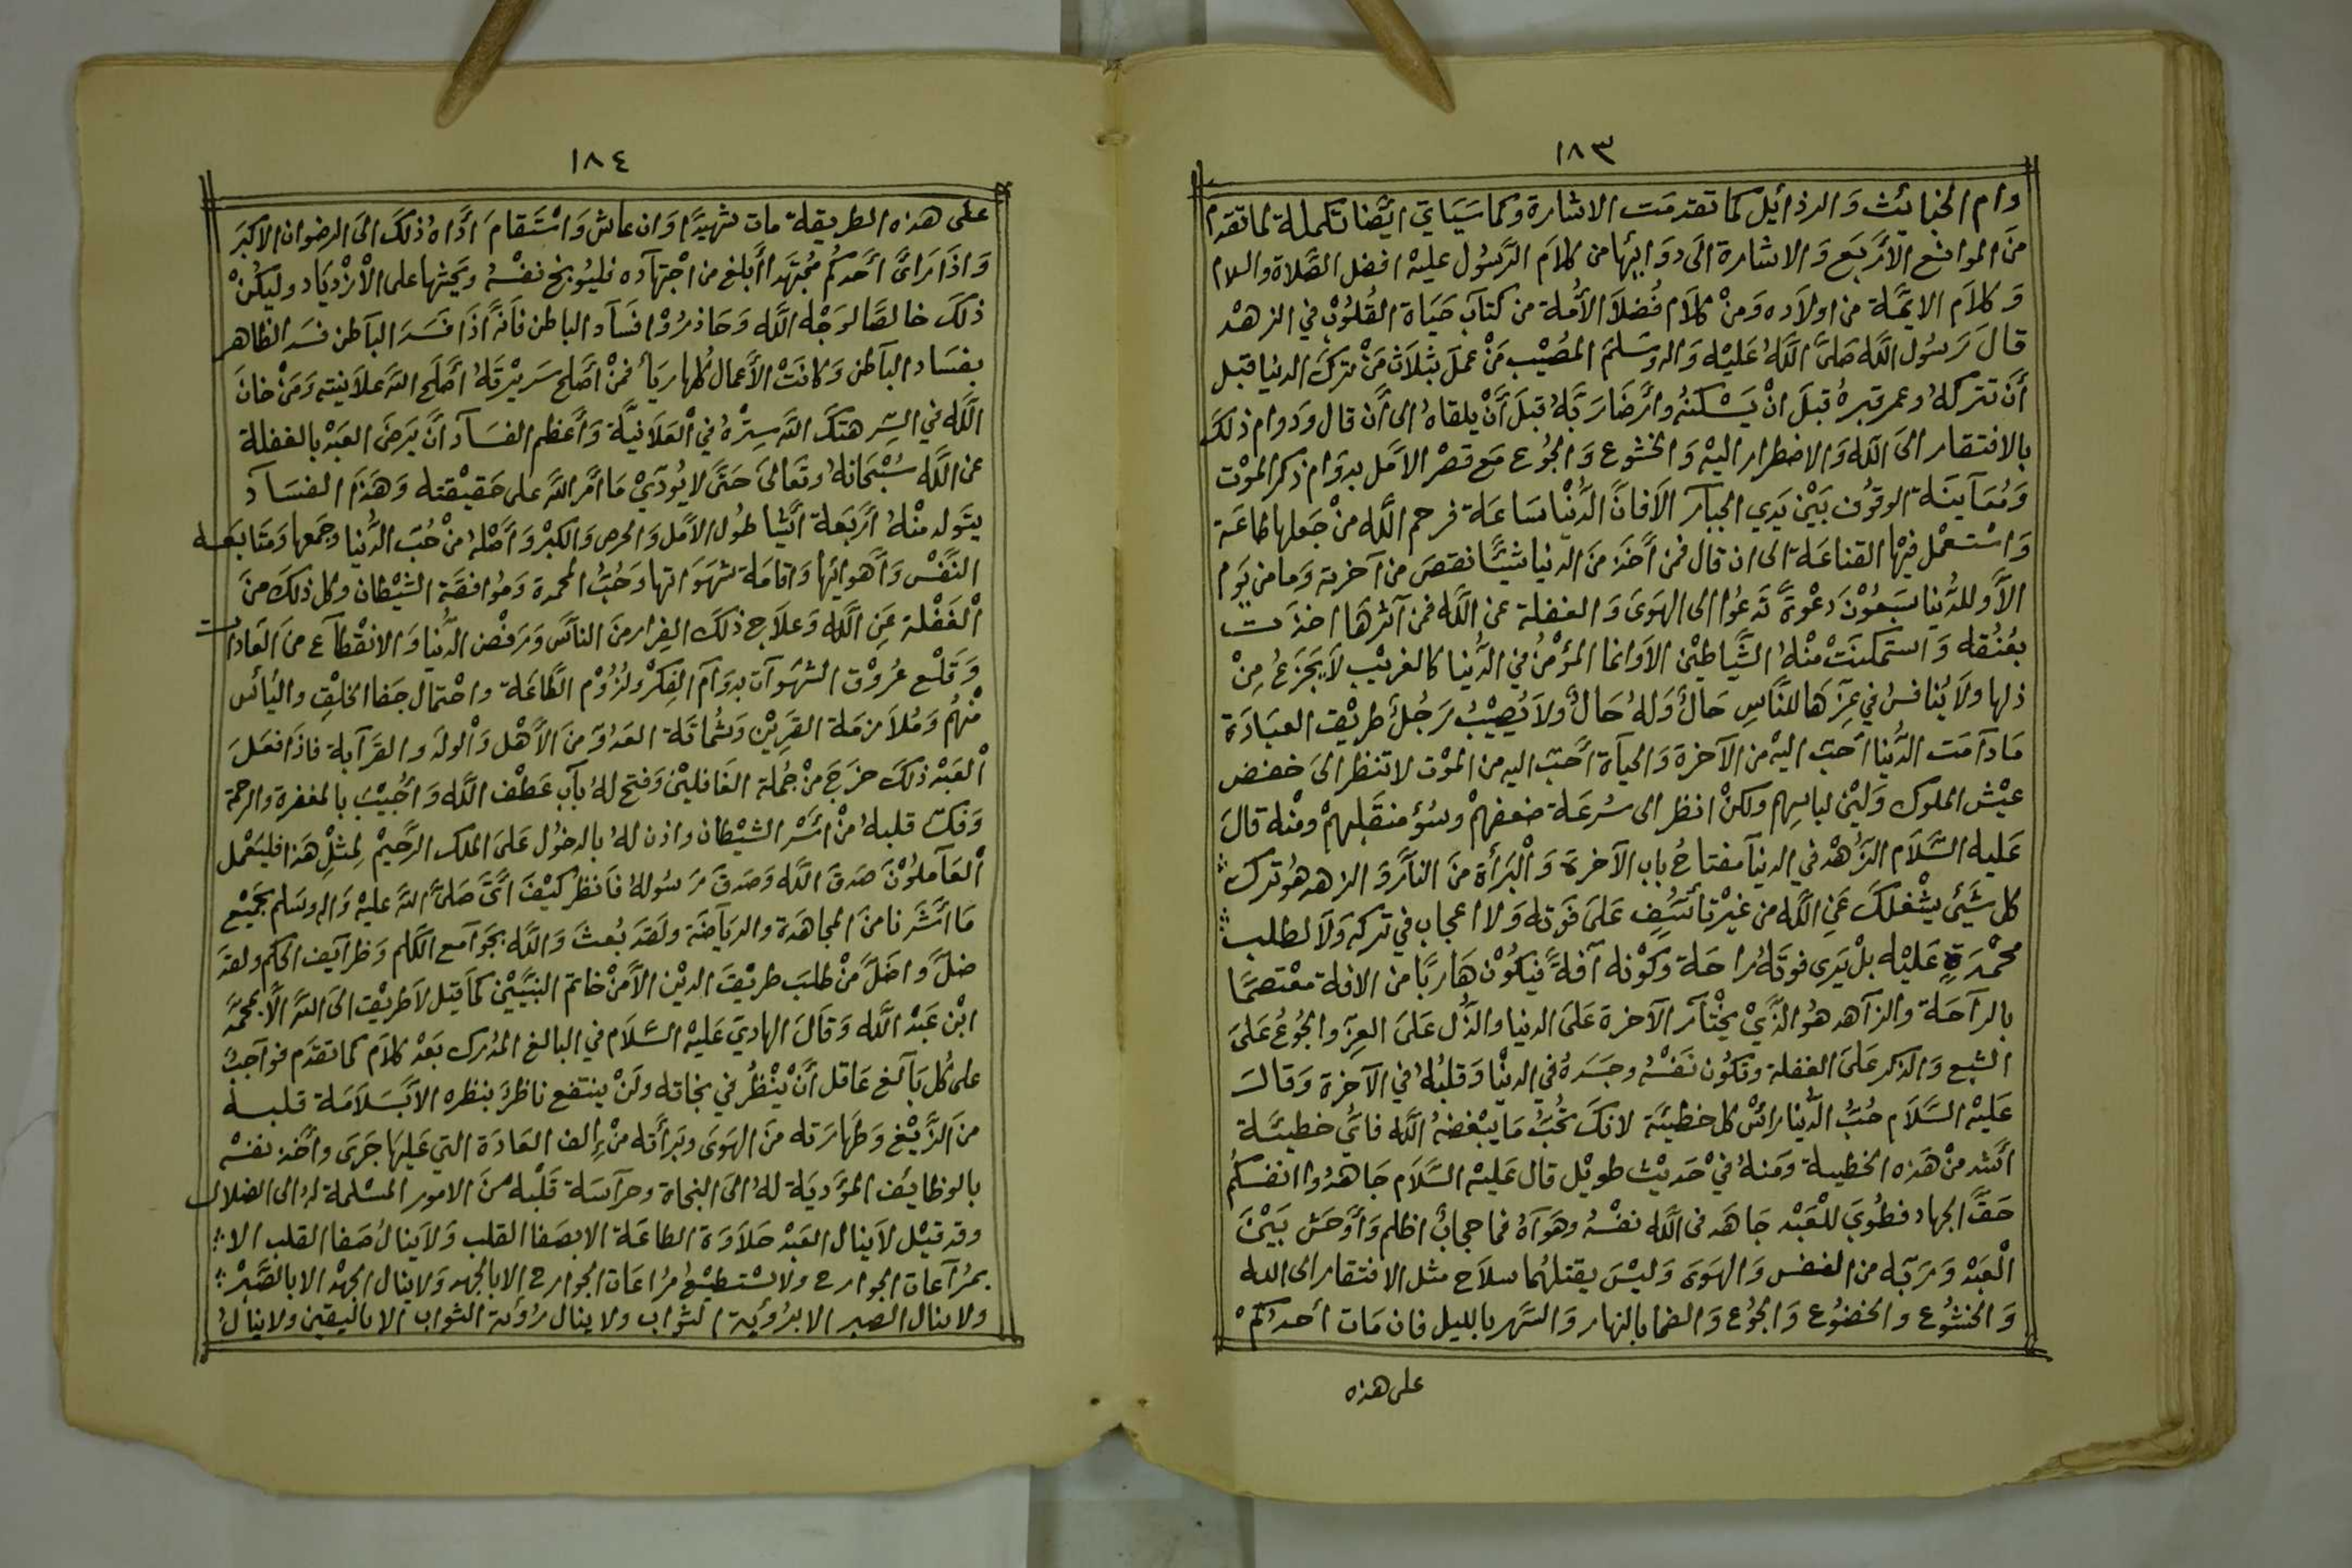 ١٨٣
وام الخبايئث وَالرذائيل كما تقدمَت الاشارة وكما سَيَاتيَ ايضًا تكملة لما تقدم
منَ المواضع الأرَبَع وَالاشارة الَى دوَايِئها من كلامَ الرَّسُول عليهْ افضل الصَّلاة والسلام
وَكلاَم الايمَّة من اولاَده وَمنْ كلاَم فُضلاَ الأمُة من كتاَب حَيَاة القُلُوْب في الزهْد
قالَ رَسُول اللَّه صَلىَّ اللَّهُ عَليْه وَاله وسَلمَ المصُيْب مَنْ عملَ بثلاَث مَنْ تركَ الدنيا قبل
أنَ تتركهُ وعمر قبرهُ قبلَ انْ يَسْكنهُ وأرضَا رَبَّهُ قبلَ أنْ يلقاهُ الى أن قال وَدوام ذلكَ
بالافتقار الىَ اللَّه وَالاضطرار اليهْ وَالخشوع وَالجُوع مَع قصرْ الاَمَل بدوَام ذكر الموْت
وَمُعَاَينَة الوقوُف بَيْنَ يَدي الجبَاَر الاَ فانَّ الدُّنْيا سَاعَة فرحم اللَّه منْ جَعلها طاعَة
وَاسْتعْمل فيْها القناعَة الى ان قال فمن أخَذ منَ الدّنيا شيئًا نقصَ من آخرته وَما من يَوم
الاَّ وللدُّنيا سَبعُوْنَ دَعْوةً تَدعُوا الى الهَوىَ وَالغفلة عن اللَّه فمن آثرهَا اخذَت
بعُنُقه وَاستمكنَتْ منْهُ الشَّياطيْن الاَ وَانما المؤْمنُ في الدُّنيا كالغريْب لاَيجَزعُ مِنْ
ذلها ولاَ يُنافسُ في عزّهَا للنَّاسِ حَالٌ وَلهُ حَالٌ ولاَ يُصيْبُ رَجُلٌ طريْقَ العبَادَة
مَا دَامَت الدُّنيا أحَبّ اليهْ من الآخرة وَالحيَاَة أحَبّ اليه من الموْت لا تنظر الىَ خفض
عيْش الملوك وَليْنَ لباسِهم ولكنْ انظر الى سُرعَة ضعفهمْ وسُؤ منقَلبهمْ ومنْه قالَ
عَليه السَّلاَم الزُّهْد في الدنياَ مفتاحُ باب الآخرة وَالْبَرأة منَ النارَّ وَ الزهد هُو ترك
كل شَيئ يشْغلكَ عَن اللَّه من غيْر تأسُّف عَلىَ فَوته وَلا اعجاب في تركه وَلاَ لطلب
محْمدَةٍ عَليْه بلْ يَرى فوتَهُ راحَة وَكَوْنه آفةً فيكوُنْ هَاربًا من الافة معْتصمًا
بالراَحَة والزاَهد هُو الذَّيْ يخْتاَر الآخرة عَلىَ الدنيا والذُّل عَلىَ العزّ والجُوعُ عَلىَ
الشبع وَالذكر عَلىَ الغفلة وتكوُن نَفْسُه وجَسَدهُ في الدنْيا وَقلبُهُ في الآخرة وَقالَ
عَليْه السَّلاَم حُبُّ الدُّنيا رائسْ كل خطيئَة لانكَ تحُبُّ مَا يبْغضهُ اللَّه فايُّ خطيئة
أشَد منْ هَذه الخطيئة وَمنهُ فيْ حَديْث طويْل قال عَليْه السَّلاَم جَاهدُوا انفسكمُ
حَقَّ الجهاد فطُوبىَ للعَبْد جَاهَد فى اللَّه نفْسُه وهَوَاهُ فما حجابٌ اظلم وَأوَحَش بَيْنَ
الْعَبْد وَمَربّه من النفس وَالهَوىَ وَليْسَ يقتلهُما سلاَح مثل الافتقار الى الله
وَالخشُوع والخضوُع وَالجُوُع وَالضما بالنهار وَالسَّهر بالليل فان مَات أحدكُمْ
على هذه
١٨٤
على هذه الطريقة مات شهيدًا وَان عاش وَاسْتَقامَ أدَّاهُ ذلكَ الىَ الرضوان الاكبَر
وَاذَا رَاىَ أحَدكُم مجُتهَدا أبلغ من اجْتهاَده فليُوبخ نفسُه ويحَثها على الأزْديَاد وليكُنْ
ذلكَ خالصًا لوَجْه اللَّه وَحَاذرُوْا فسَاَد الباطن فاَنهَّ اذَا فسَدَ الباَطن فسَد الظاهر
بفسَاد الباَطن وَكانَتْ الأعَمال كُلها ريَأ فمنْ أصَلح سَريْرَتهُ أصَلَح اللَّه علاَنيته وَمَنْ خانَ
اللَّه في السِّر هتَكَ اللَّه سِترْهُ في الْعَلاَنيَّة وَأعَظم الفسَاَد أنَّ يَرضىَ العَبْد بالغفلة
عن اللَّه سُبْحَانهُ وتَعَالىَ حَتىَّ لا يُؤدَيْ مَا أمَر اللَّه على حَقيْقته وَهَذَا الفسَاَد
يتَولد منْهُ أرَبَعَة أشَيا طوُل الأمَل وَالحرص وَالكبْر وَأصْلهُ منْ حُبّ الدُّنيا وجَمعها وَمتَابعَه
النَّفسْ وَأهوائِها وَاقامَة شهَوَاتها وَحُبُّ المحمدة وَمُوافقَة الشيْطان وكل ذلكَ منَ
الْغَفْلة عَنِ اللَّه وَعلاَج ذلكَ الفِرار منَ الناَّس وَرَفضْ الدُّنيا وَالانْقطاَع منَ العَادات
وَقلْع عُرُوْق الشهَوَات بدوَاَم الِفكرْ ولزُوُمْ الطَّاعَة واحْتمال جَفا الخلق واليَأس
منْهُمُ وَمُلاَزمَة القَريْن وَشُماتَة العَدُوّ منَ الأهْل وَالْولَد والقَرَابة فاذَا فعَلَ
الْعَبْد ذلكَ خرَجَ منْ جُملة الغَافليْنَ وَفتح لهُ باَب عَطْف اللَّه وَأجُيْبَ بالمغفرة والرحمة
وَفكّ قلبهُ منْ أسَرْ الشيْطان واذن لهُ بالدخوُل عَلىَ الملك الرَّحيْم لِمثْلِ هَذا فليَعْمل
الْعَاَملوُنَ صَدقَ اللَّه وَصَدقَ رَسُولهُ فاَنظُر كيْفَ أتىَ صَلىَّ اللَّه عليْه وَاله وسَلم بجَميْع
مَا أشَرنا منَ المجاهَدة والريَاَضَة ولَقدَ بُعثَ وَاللَّه بجَوَامع الكَلم وَظراَيف الحكم ولقدَ
ضلَّ واضَلَّ منْ طلبَ طريْقَ الديْن الأمنْ خاتم النبَييّنْ كَما قيْل لاَ طريْقَ الىَ اللَّه الاَّ بمحمَّد
ابْن عَبْد اللَّه وَقالَ الهاديَ عَليْه السَّلاَم في البالغ المُدرك بَعْد كلاَم كما تقدَم فوَاجبٌ
على كُل بَاَلغ عَاقل أنْ ينْظُر في نجاته ولَنْ ينتفع ناظرٌ بنظره الاَّ بَسَلاَمَة قلبه
من الزَّيْغ وَطهارَته منَ الهوَىَ وبَرأته منْ إلف العَادَة التي عَليَها جَرىَ وأخَذ نفسْه
بالوظائِف المؤَديَة لهُ الىَ النجاة وحراَسَة قَلْبه منَ الامور المسْلمة لهُ الى الضلال
وقد قيْل لاَينال العَبْد حَلاَوَة الطاعَة الا بصَفا القلب وَلاَينالُ صَفا القلب الا
بمرُاَعات الجوارح ولا يسْتطيْعُ مرُاعَات الجوارح الا بالجهد وَلا ينال الجهْد الا بالصَّبرْ
ولا ينال الصبر الا برُؤيَة الثوَاب ولا ينال رُؤيَة الثواب الا باليَقين ولا ينالُ